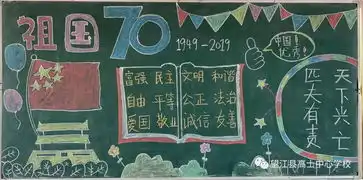 祖国
70
1949-2019
中国!
优秀!
富强 民主 文明 和谐
自由 平等 公正 法治
爱国 敬业 诚信 友善
天下兴亡
匹夫有责
望江县高士中心学校